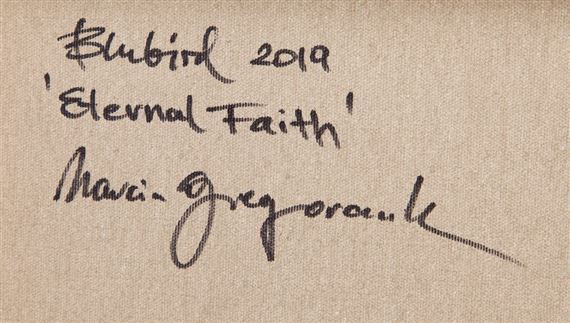 Blubird 2019
'Eternal Faith'
Marcin Gregorczuk